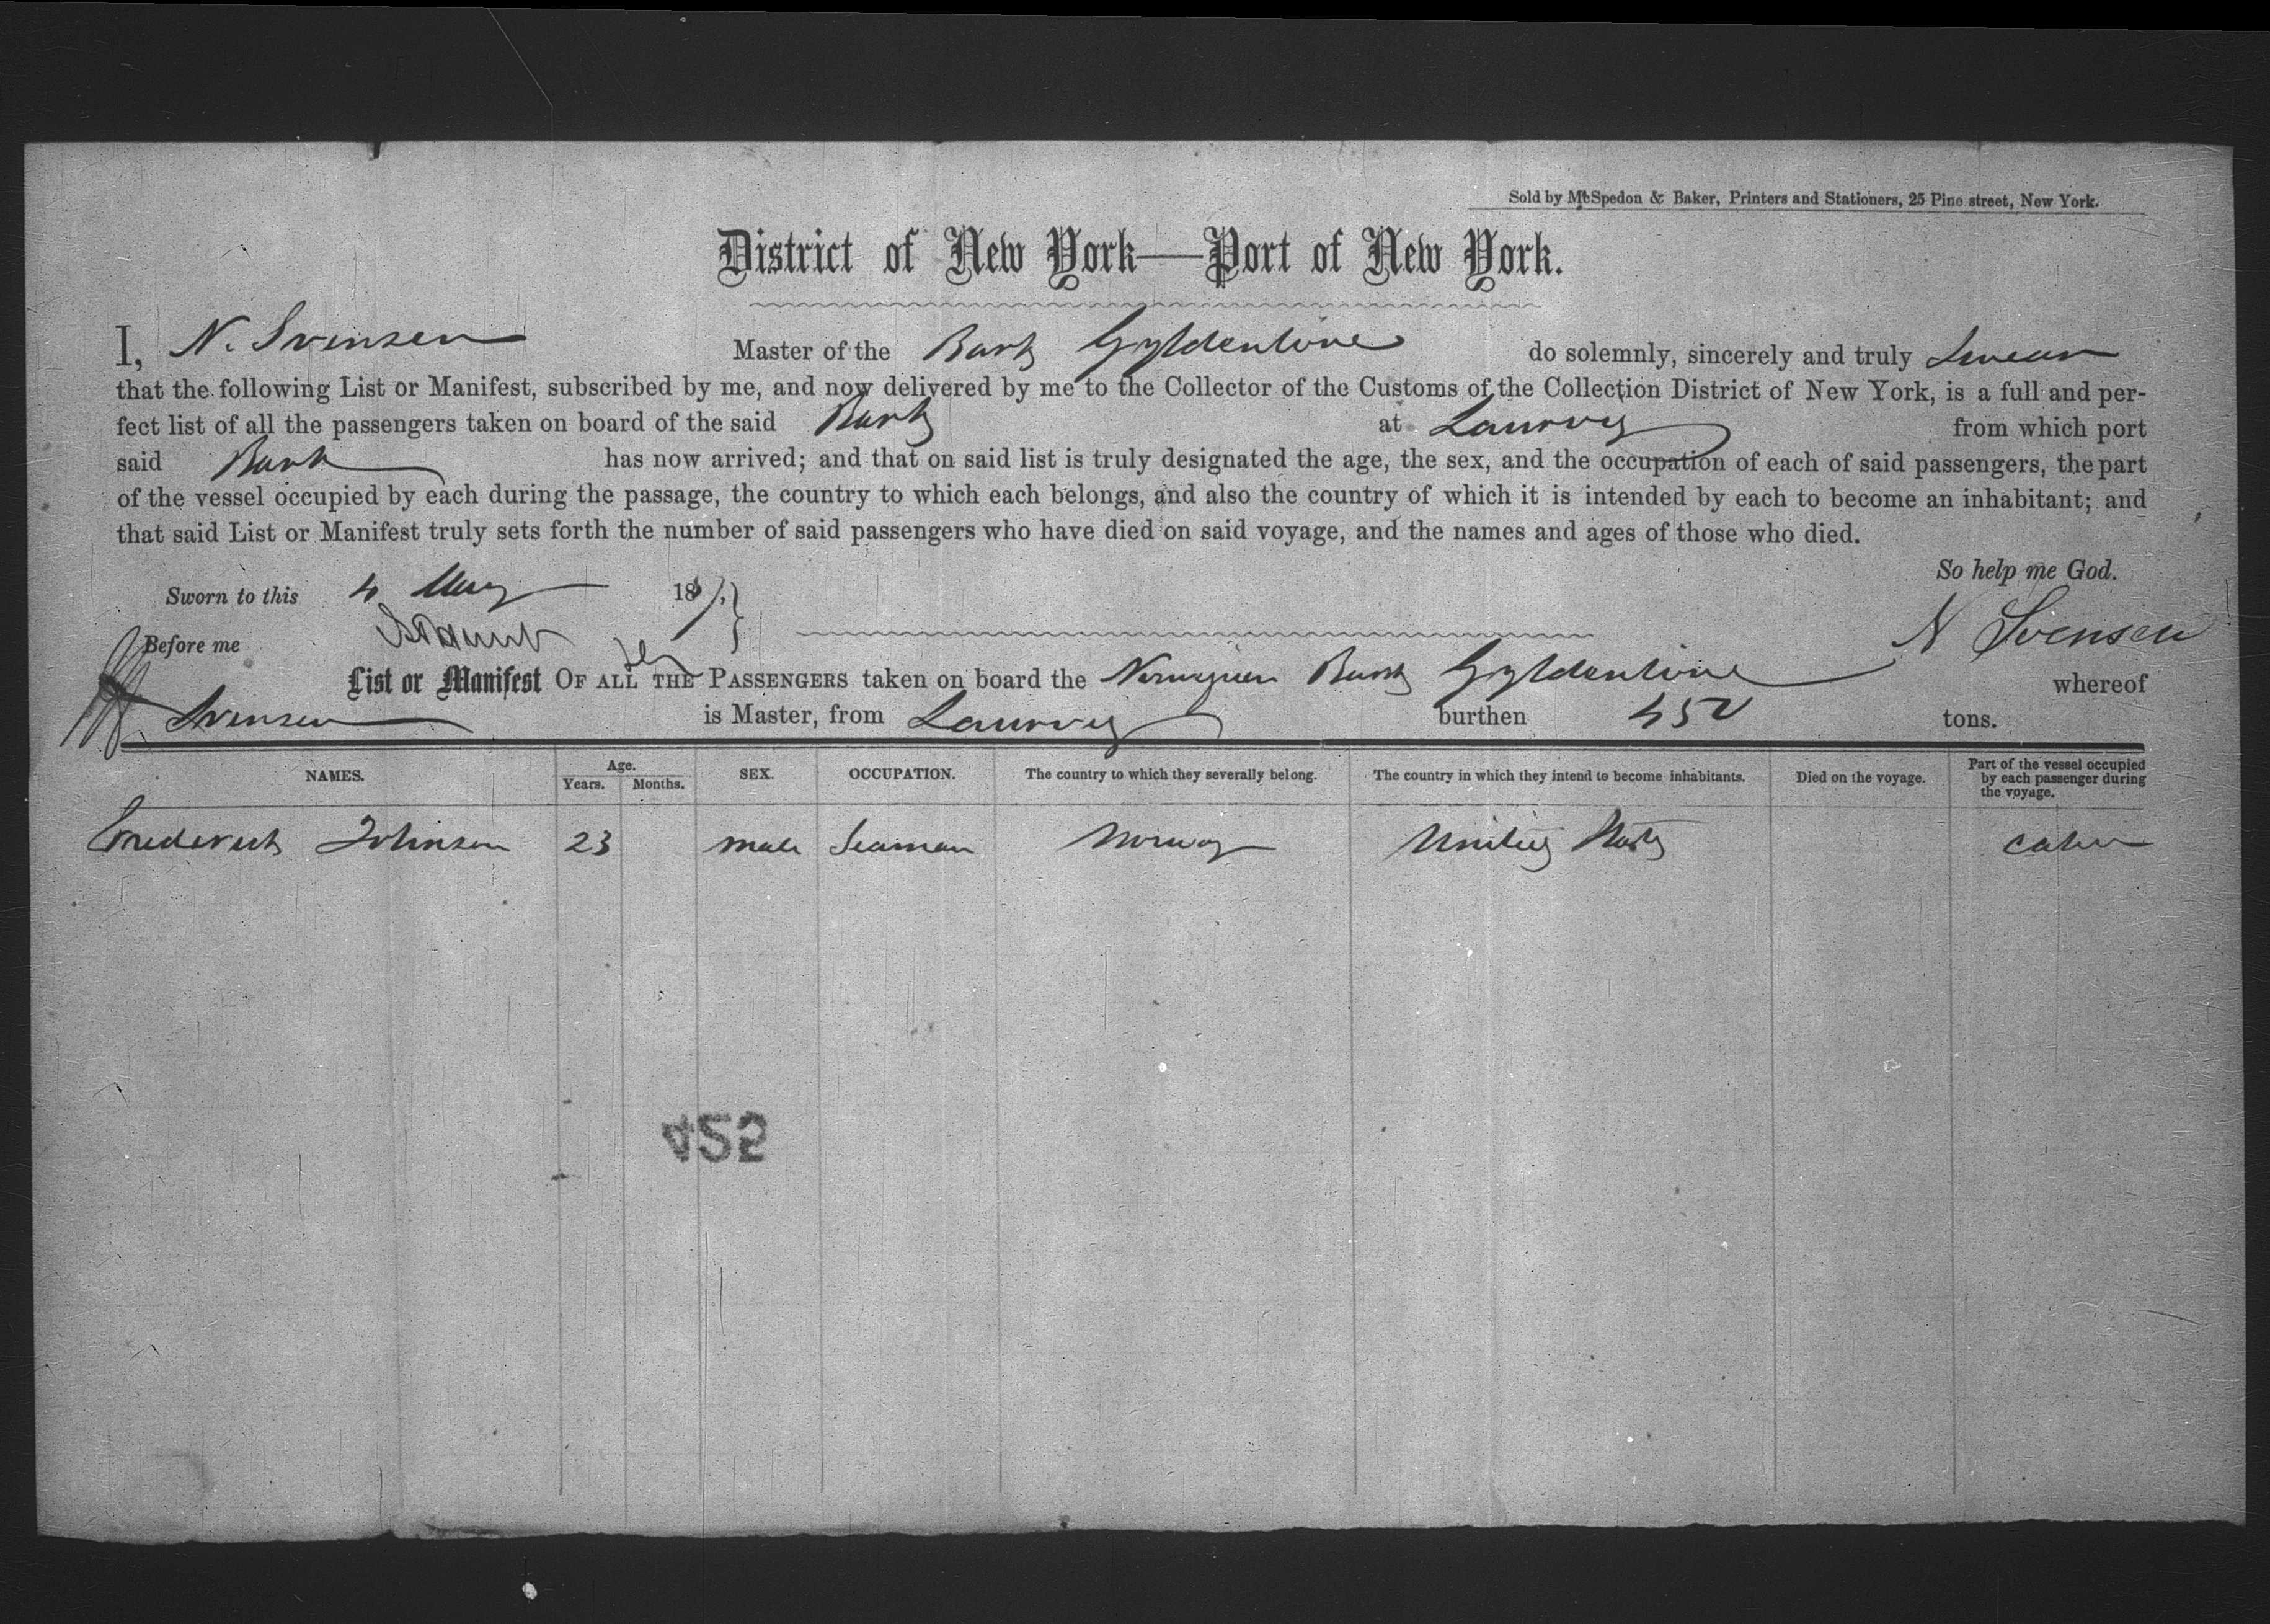 Sold by McSpedon & Baker, Printers and Stationers, 25 Pine street, New York.
District of New York—Port of New York.
I, N. Svensen Master of the Bark Gyldenlove do solemnly, sincerely and truly Swear
that the following List or Manifest, subscribed by me, and now delivered by me to the Collector of the Customs of the Collection District of New York, is a full and per-
fect list of all the passengers taken on board of the said Bark at Laurvig from which port
said Bark has now arrived; and that on said list is truly designated the age, the sex, and the occupation of each of said passengers, the part
of the vessel occupied by each during the passage, the country to which each belongs, and also the country of which it is intended by each to become an inhabitant; and
that said List or Manifest truly sets forth the number of said passengers who have died on said voyage, and the names and ages of those who died.
So help me God.
Sworn to this 4 May 18
Before me
N Svensen
List or Manifest OF ALL THE PASSENGERS taken on board the Norwegian Bark Gyldenlove whereof
Svensen is Master, from Laurvig burthen 452 tons.
NAMES. Age. Years. Months. SEX. OCCUPATION. The country to which they severally belong. The country in which they intend to become inhabitants. Died on the voyage. Part of the vessel occupied by each passenger during the voyage.
Frederick Johnson 23 male Seaman Norway United States Cabin
452